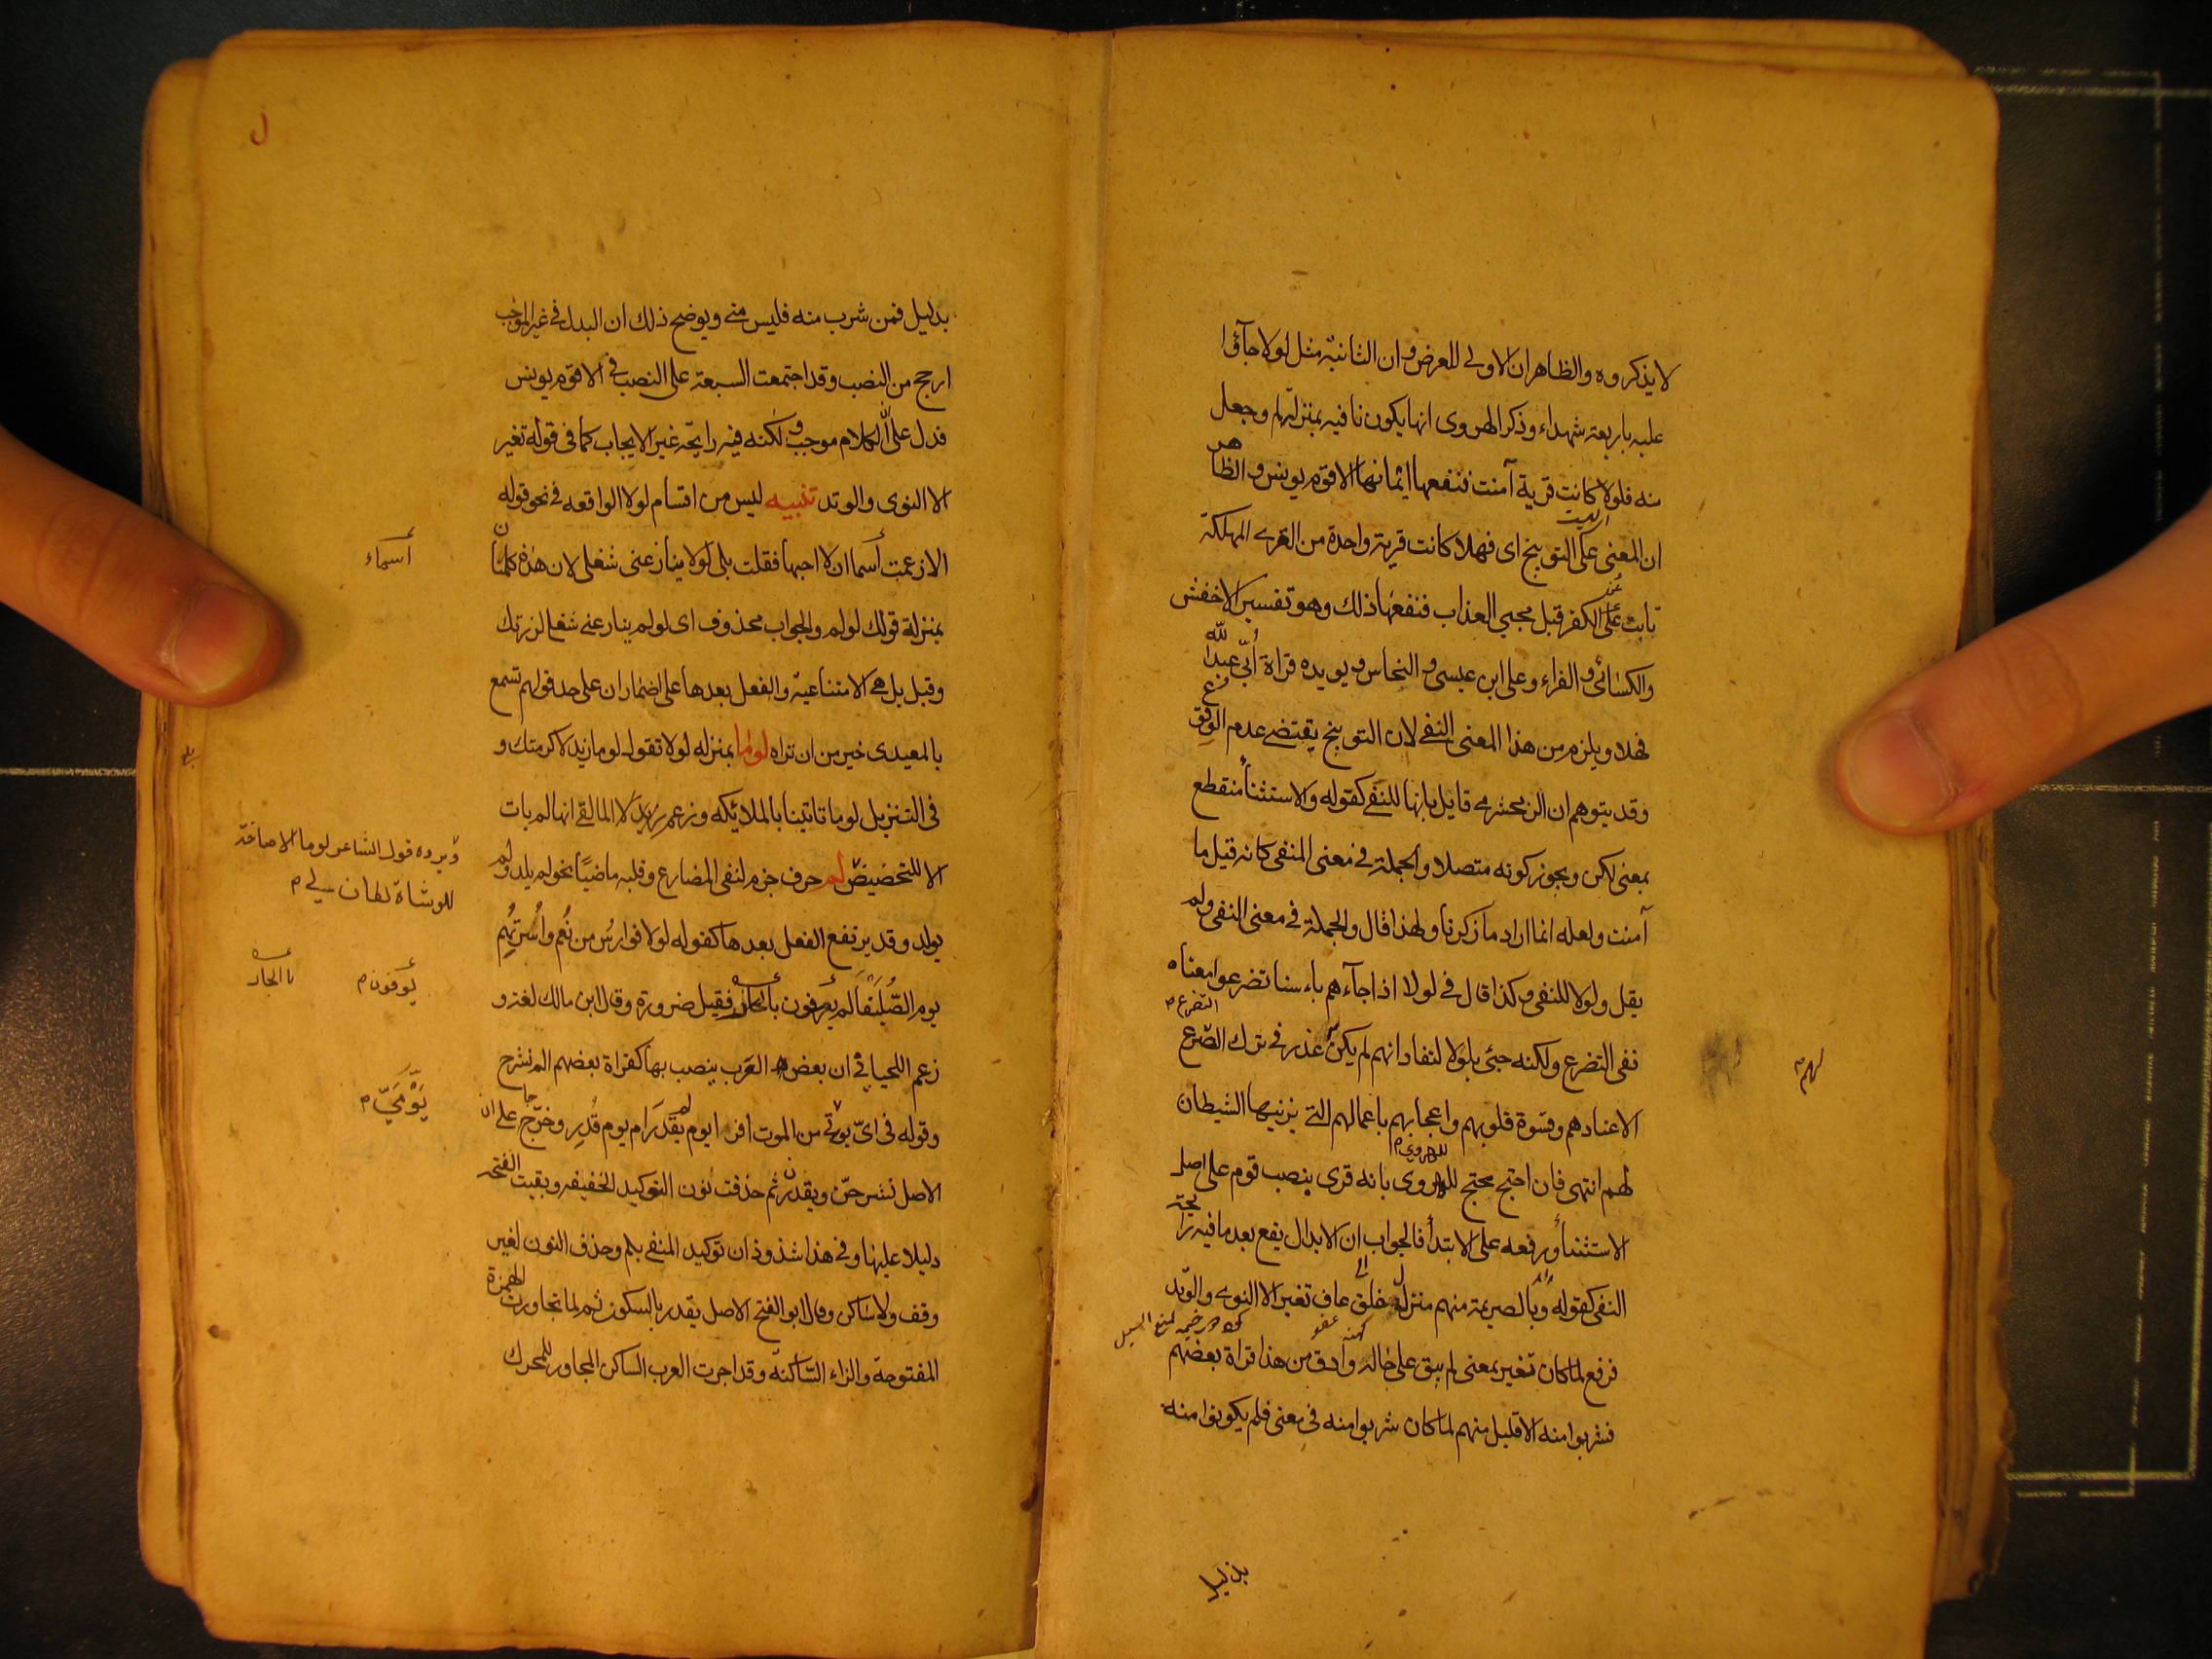 لا يذكروه والظاهر ان الاولى للعرض وان الثانية مثل لولا جآؤا
عليه باربعة شهداء وذكر الهروى انها يكون نافيه بمنزلة لم وجعل
منه فلولا كانت قرية آمنت فنفعها ايمانها الا قوم يونس والظاهر
ان المعنى على التوبيخ اى فهلا كانت قرية واحدة من القرى المهلكة
تابت على الكفر قبل مجيى العذاب فنفعها ذلك وهو تفسير الاخفش
والكسائى والفراء وعلى ابن عيسى والنحاس ويويده قراة أبى عبد الله
فهلا ويلزم من هذا المعنى النفى لان التوبيخ يقتضى عدم الوقوع
وقد يتوهم ان الزمخشرى قايل بانها للنفى كقوله والاستثنأ منقطع
بمعنى لكن ويجوز كونه متصلا والجملة فى معنى المنفى كانه قيل ما
آمنت ولعله انما اراد ما ذكرنا ولهذا قال والجملة فى معنى النفى ولم
يقل ولولا للنفى وكذا قال فى لولا اذا جآءهم باءسنا تضرعوا معناه
نفى التضرع ولكنه جئ بلولا لتفاد انهم لم يكن عذر فى ترك التضرع
لهم م
التضرع م
الا عنادهم وقسوة قلوبهم واعجابهم باعمالهم التى يزنيها الشيطان
لهم انتهى فان احتج محتج للهروى بانه قرى بنصب قوم على اصل
للهروى م
الاستثنأ ورفعه على الابتدأ فالجواب ان الابدال يقع بعد ما فيه رايحة
النفى كقوله وبالصريمة منهم منزل خلق عاف تغير الا النوى والوتد
فرفع لما كان تغير بمعنى لم يبق على حاله وادق من هذا قراة بعضهم
فشربوا منه الا قليل منهم لما كان شربوا منه فى معنى فلم يكونوا منه
بدليل
ل
بدليل فمن شرب منه فليس منى ويوضح ذلك ان البدل فى غير الموجب
ارجح من النصب وقد اجتمعت السبعة على النصب فى الا قوم يونس
فدل على ان الكلام موجب ولكنه فيه رايحة غير الايجاب كما فى قوله تغير
الا النوى والوتد تنبيه ليس من اقسام لولا الواقعه فى نحو قوله
الا زعمت أسما ان لا احبها فقلت بلى لولا ينازعنى شغلى لان هذه كلمتان
أسماء
بمنزلة قولك لو لم والجواب محذوف اى لو لم ينازعنى شغلى لزرتك
وقيل بل هى الامتناعية والفعل بعدها على اضمار ان على حد قولهم تسمع
بالمعيدى خير من ان تراه لوما بمنزله لولا تقول لوما زيد لاكرمتك و
فى التنزيل لوما تاتينا بالملائكه وزعم المالقى انها لم يات
الا للتحضيض لم حرف جزم لنفى المضارع وقلبه ماضيا نحو لم يلد ولم
ويرده قول الشاعر لوما الاصاخة
للوشاة لكان لى م
يولد وقد يرتفع الفعل بعدها كقوله لولا فوارس من نعم وأسرتهم
يوم الصليفا لم يوفون بالجار فقيل ضرورة وقال ابن مالك لغة و
يوفون م
بالجار
زعم اللحيانى ان بعض العرب ينصب بها كقراة بعضهم الم نشرح
وقوله فى اىّ يومى من الموت افر ايوم لم يقدر ام يوم قُدِر وخرّجا على ان
يَوْمَيَّ م
الاصل نشرحنّ ويقدرن ثم حذفت نون التوكيد الخفيفه وبقيت الفتحة
دليلا عليها وفى هذا شذوذ ان توكيد المنفى بلم وحذف النون لغير
وقف ولا ساكن وقال ابو الفتح الاصل يقدر بالسكون ثم لما تجاورت الهمزة
المفتوحة والراء الساكنه وقد اجرت العرب الساكن المجاور للمحرك